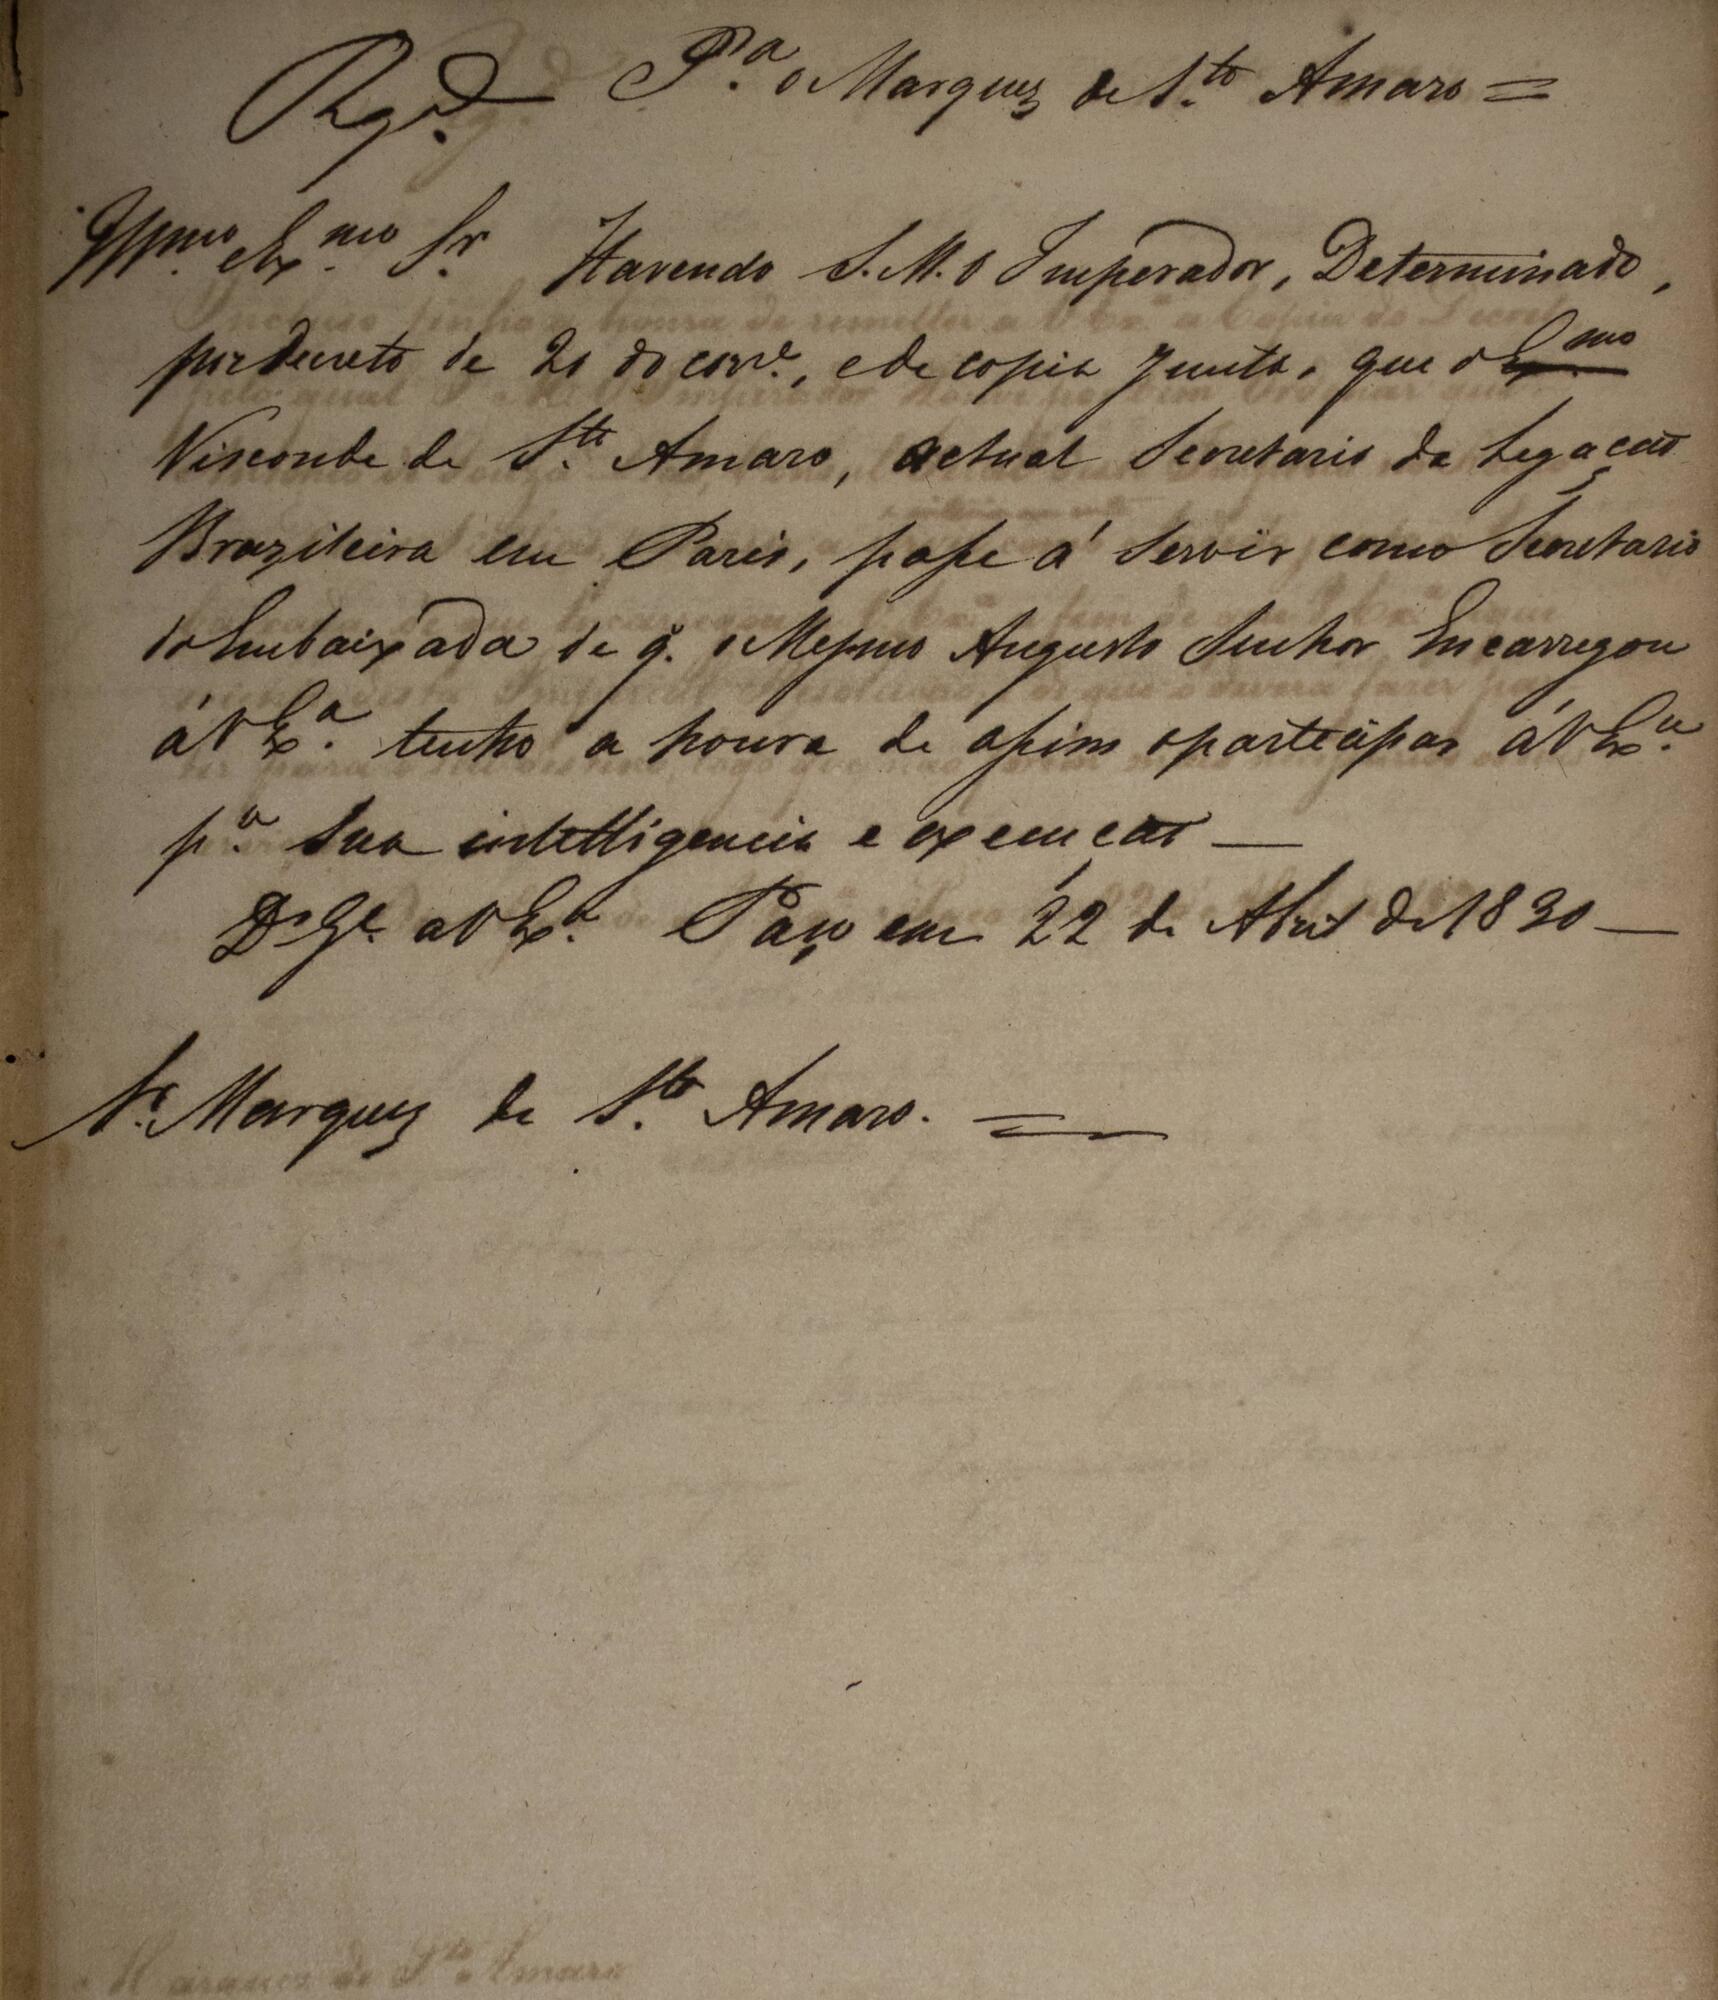 Rg.do P.a o Marquez de S.to Amaro =
Illmo. e Ex.mo Sr. Havendo S. M. o Imperador, Determinado,
por decreto de 20 do corr.e, e de copia junta, que o Ex.mo
Visconde de S.to Amaro, actual Secretario da Legação
Brazileira em Paris, passe á servir como Secretario
da Embaixada de q. o Mesmo Augusto Senhor Encarregou
á V Ex.a tenho a honra de assim o participar á V Ex.a
p.a sua intelligencia e execução —
D.s G.e a V Ex.a Paço em 22 de Abril de 1830 —
Sr. Marquez de S.to Amaro. =
Marquez de S.to Amaro